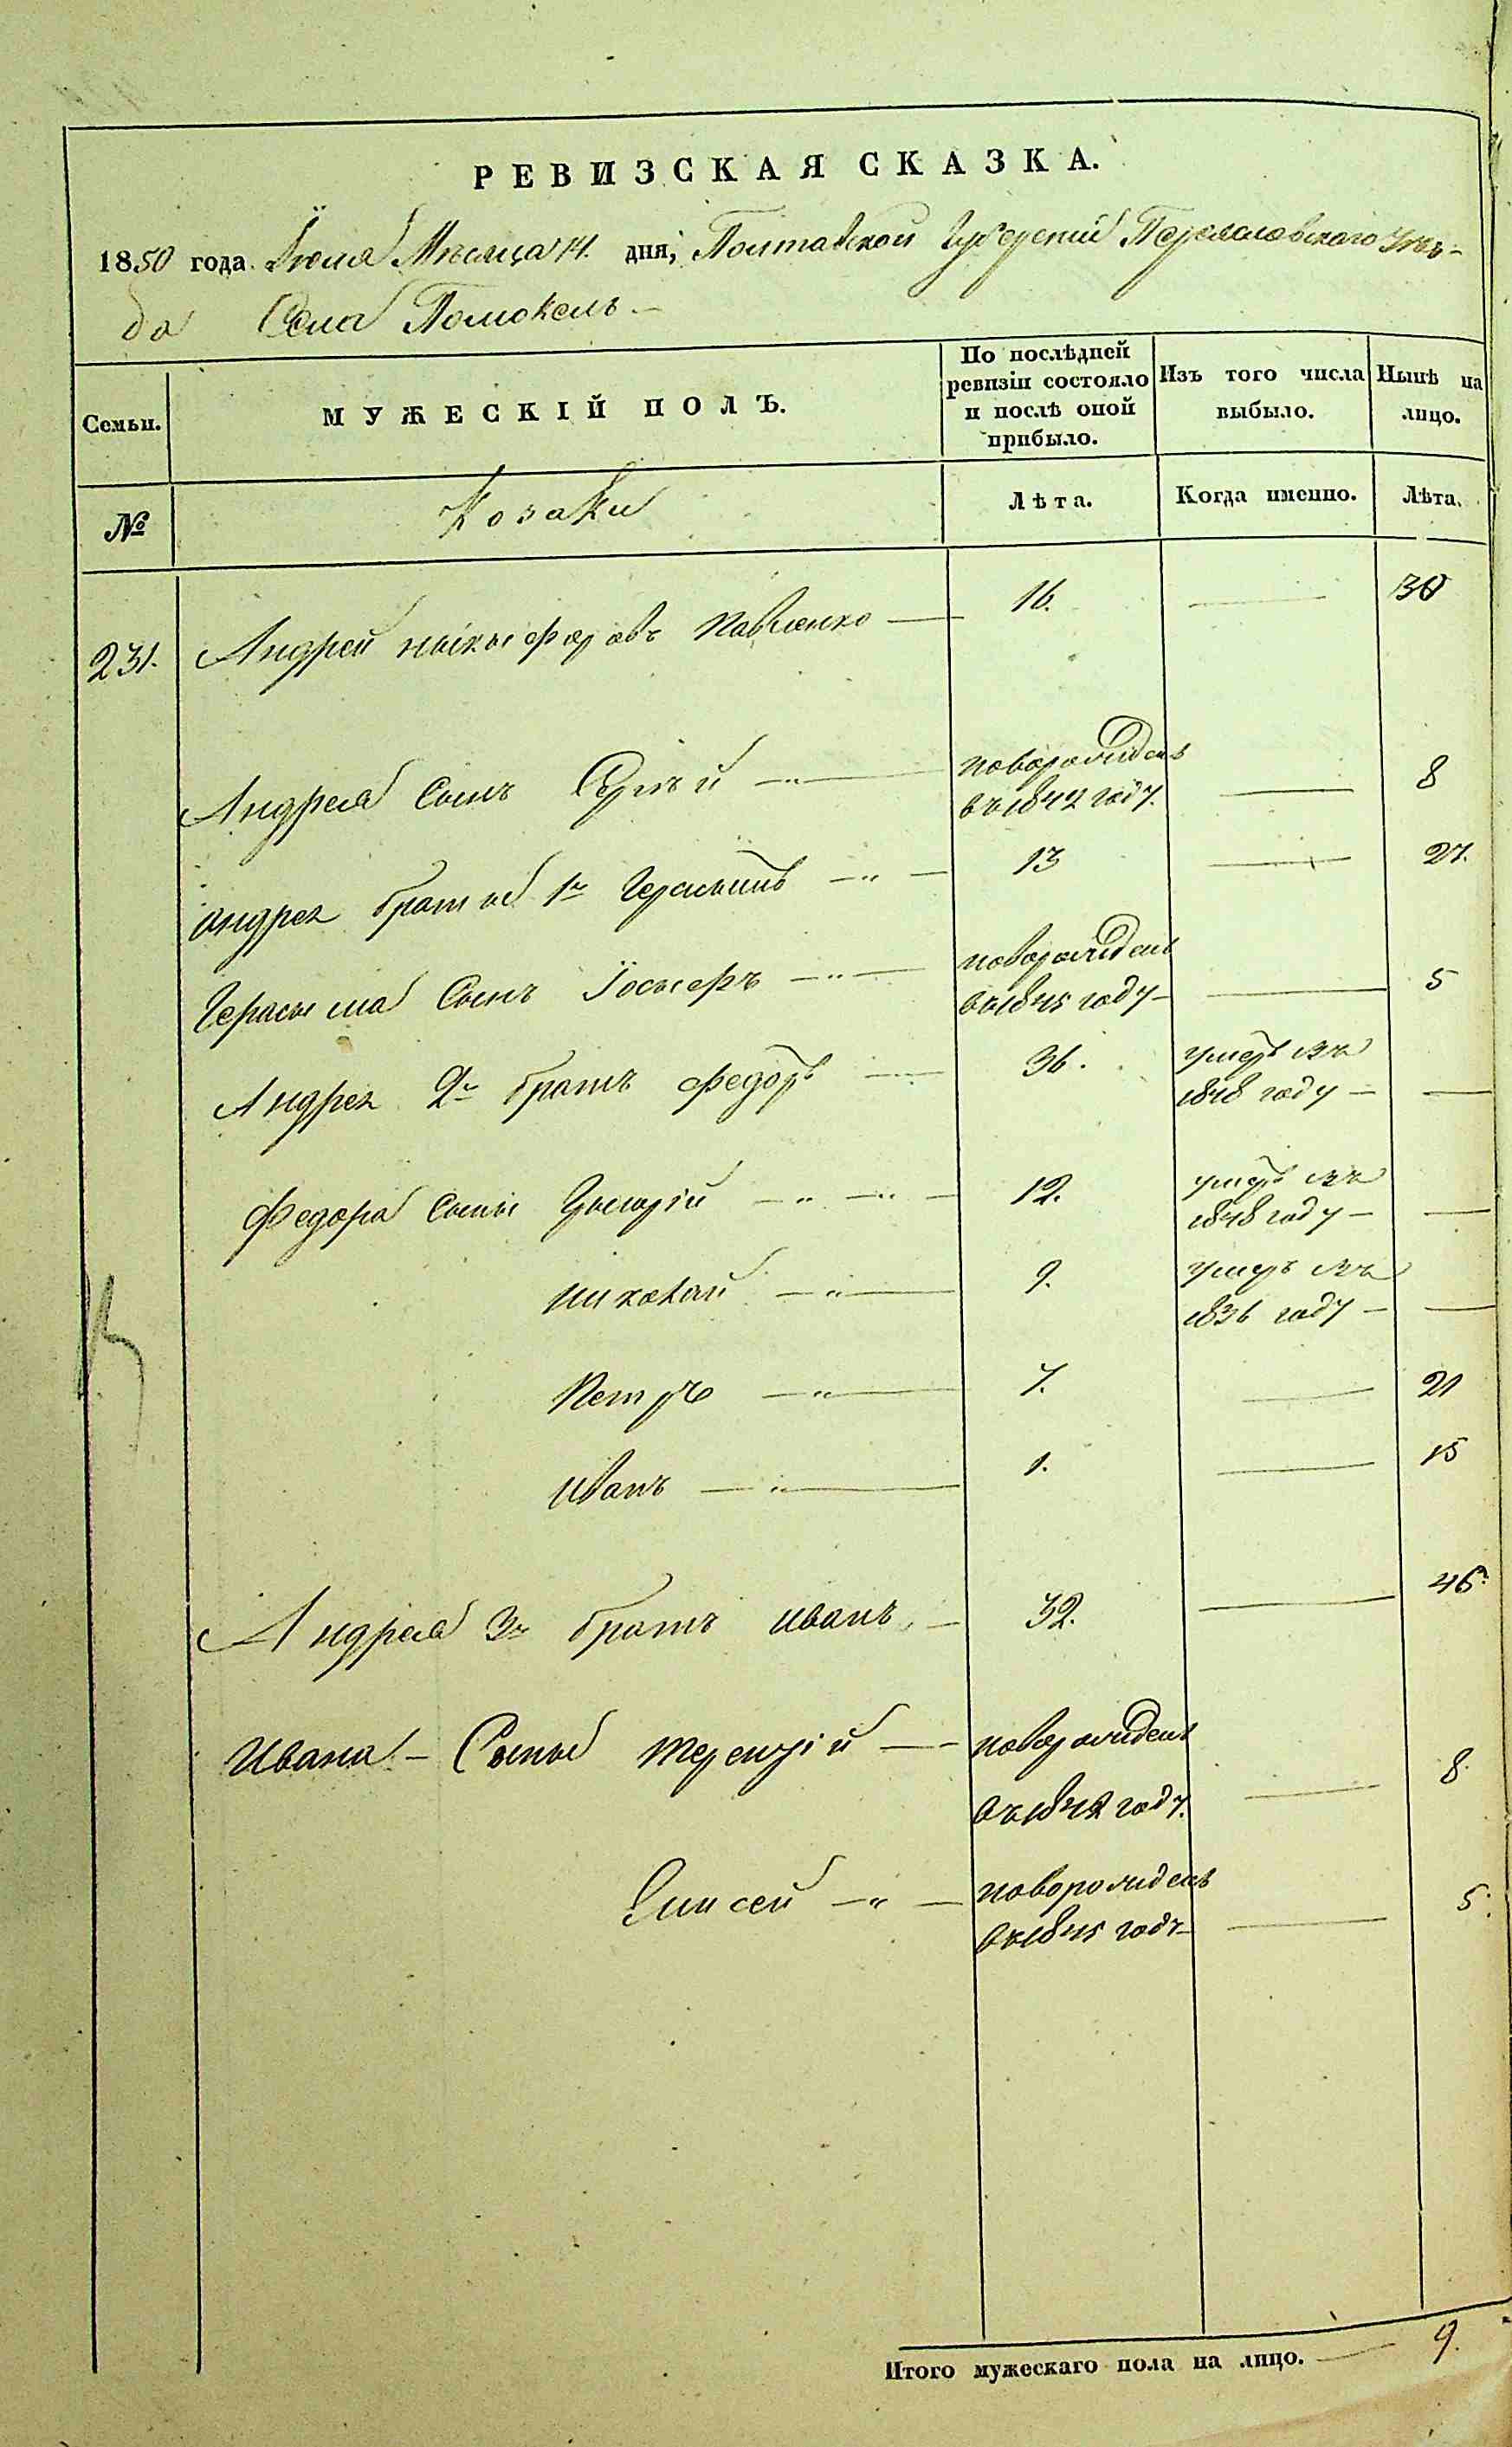 РЕВИЗСКАЯ СКАЗКА.
1850 года Июля Мѣсяца 14 дня, Полтавской Губернии Переяславского Уѣз-
да Села Помокель
Семьи. МУЖЕСКІЙ ПОЛЪ. По послѣдней ревизіи состояло и послѣ оной прибыло. Изъ того числа выбыло. Нынѣ на лицо.
№ Козаки Лѣта. Когда именно. Лѣта.
231. Андрей Никифоровъ Павленко — 16. — 30
Андрея Сынъ Сергѣй — новорожденъ въ 1842 году. — 8
Андрея братья 1й Герасимъ — 13 — 27.
Герасима Сынъ Іосифъ — новорожденъ въ 1845 году — 5
Андрея 2й братъ Федоръ — 36. умеръ въ 1848 году — —
Федора Сыны Григорій — 12. умеръ въ 1848 году — —
Николай — 9. умеръ въ 1836 году — —
Петръ — 7. — 21
Иванъ — 1. — 15
Андрея 3й братъ Иванъ — 32. — 46.
Ивана — Сыны Терентій — новорожденъ въ 1842 году. — 8.
Елисей — новорожденъ въ 1845 году — 5.
Итого мужескаго пола на лицо. — 9.